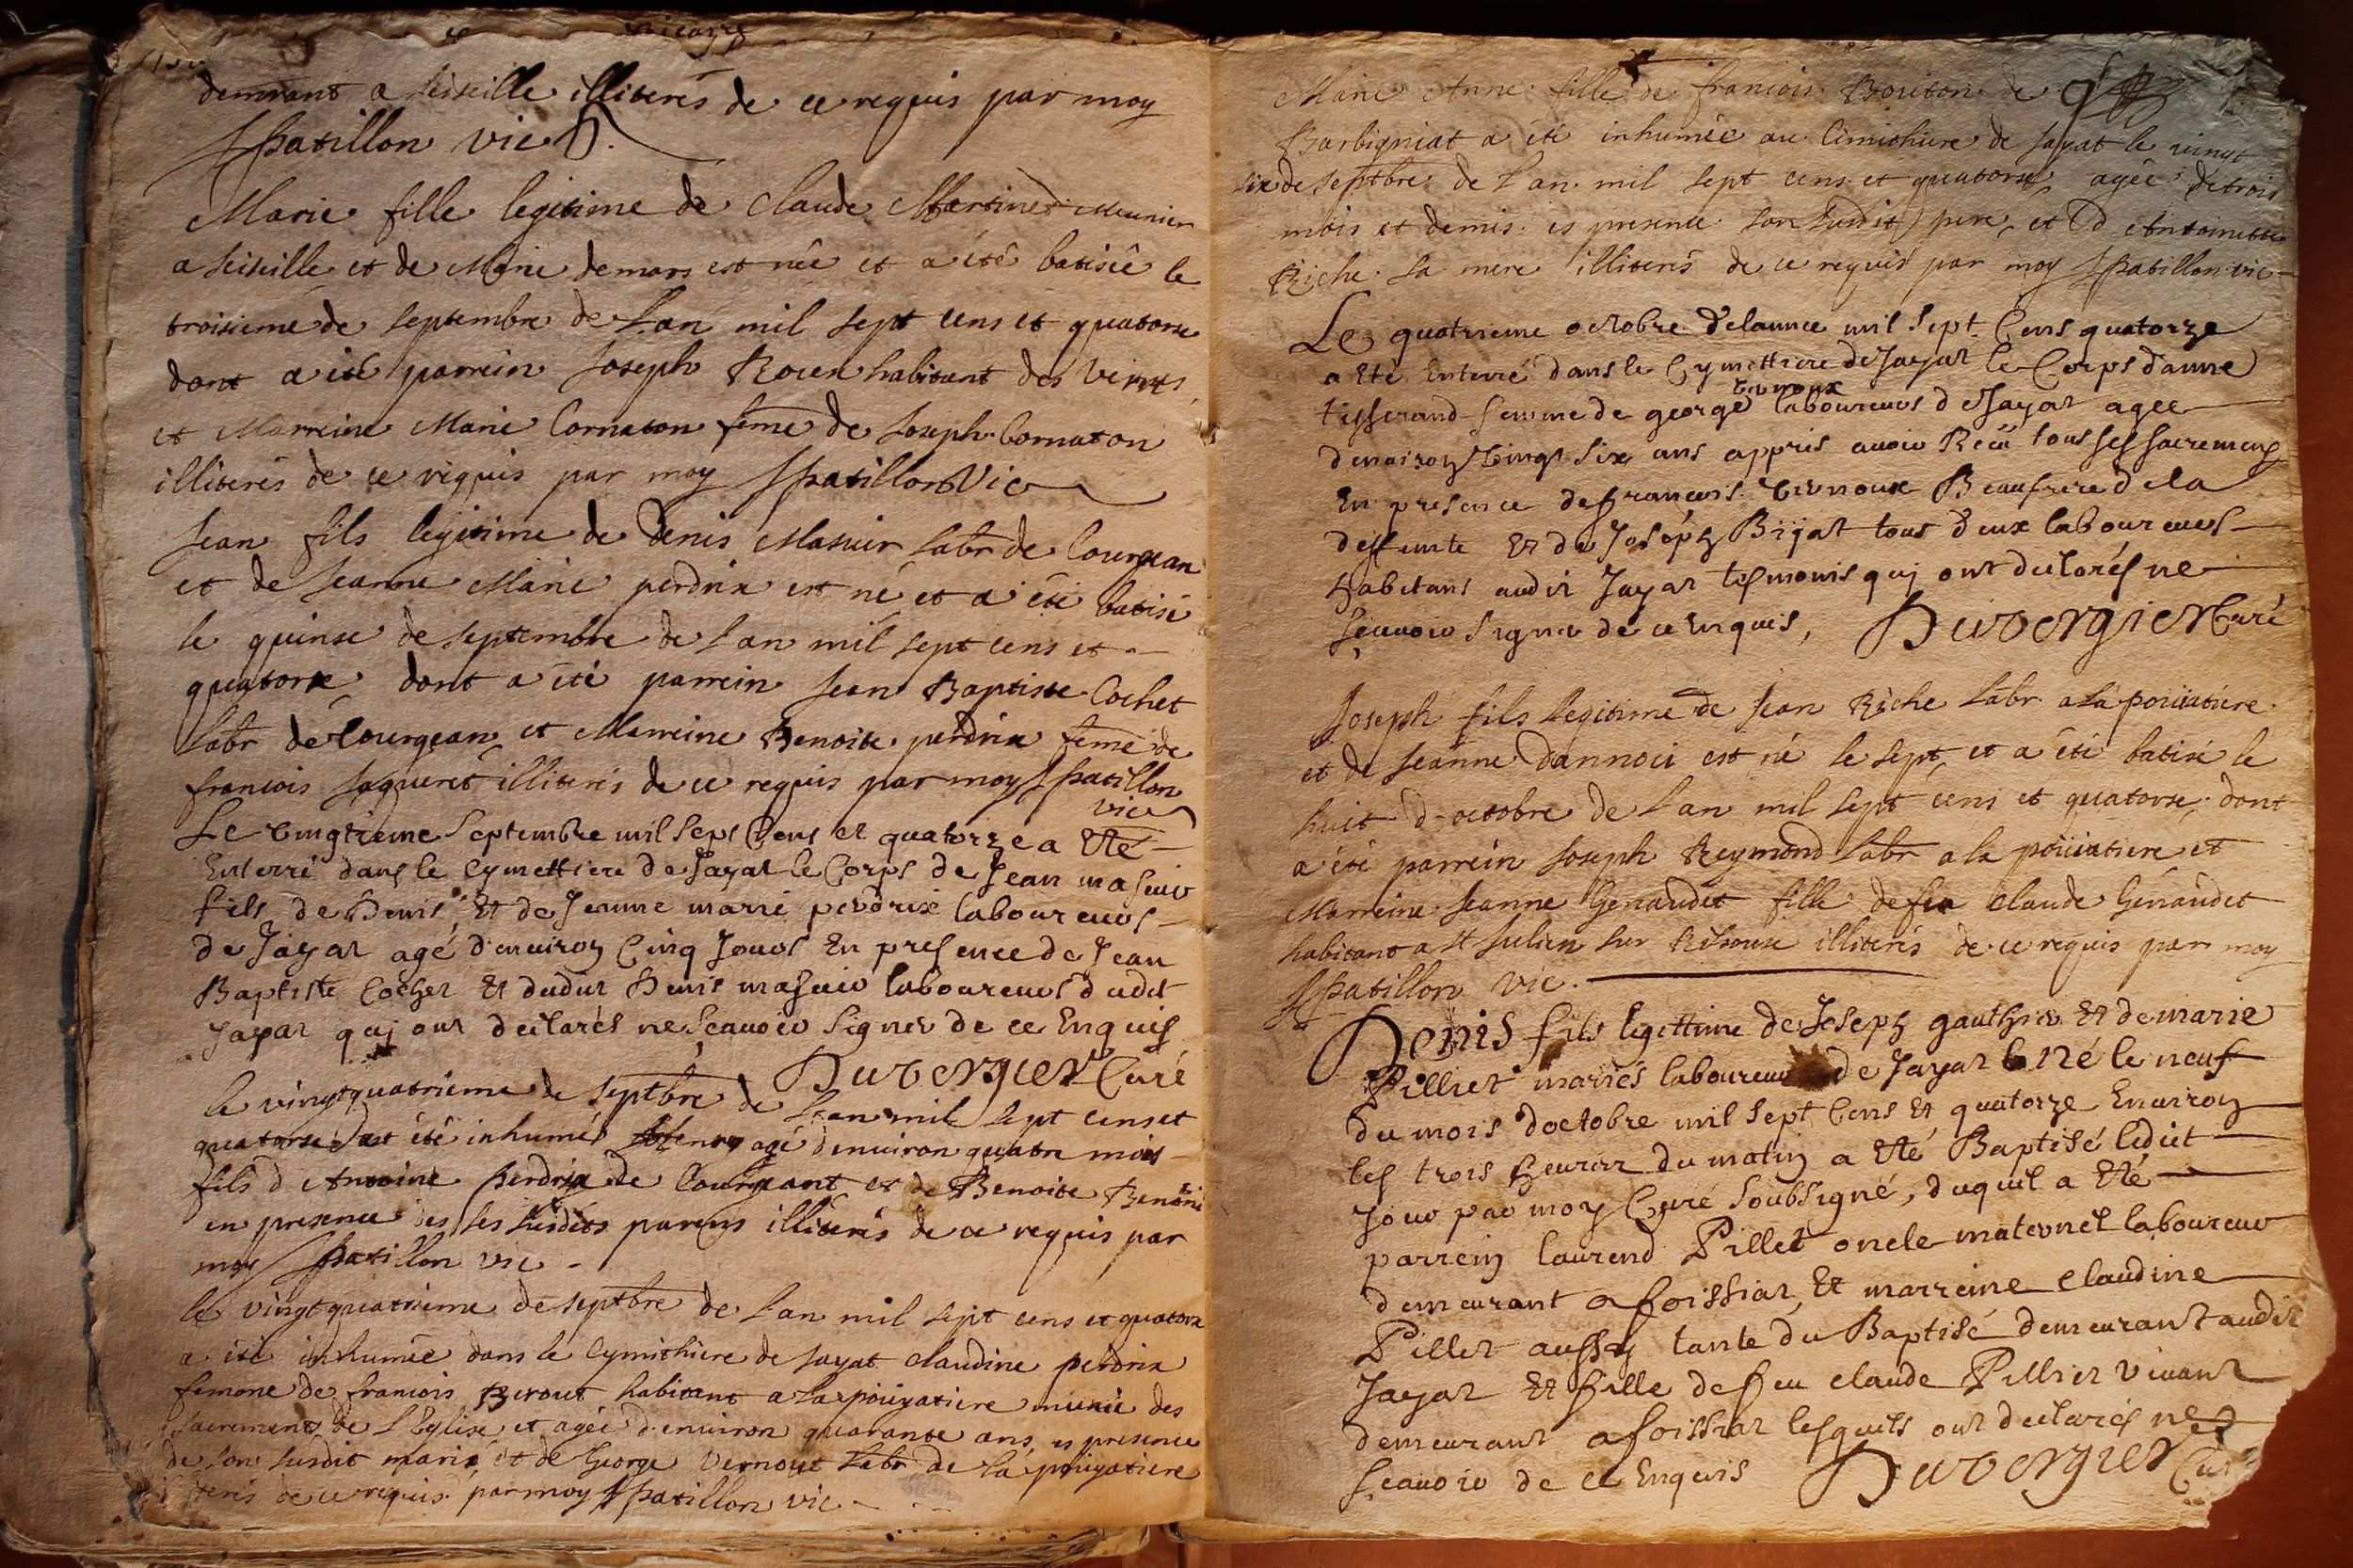 demrant a seiseille illiterés de ce requis par moy
Spatillon vic
Marie fille legitime de Claude Martinet Meunier
a seiseille et de Marie demars est née et a été batisée le
troisieme de septembre de l'an mil sept cens et quatorse
dont a été parrein Joseph Rouer habitant des Vernes
et Marreine Marie Cornaton feme de Joseph Cornaton
illiterés de ce requis par moy Spatillon Vic
Jean fils legitime de Denis Masuir labr de Courgean
et de Jeanne Marie perdrix est né et a été batisé
le quinse de septembre de l an mil sept cens et
quatorse dont a été parrein Jean Baptiste Cochet
labr de Courgean et Marreine Benoite perdrix feme de
francois Jaqueret illiterés de ce requis par moy Spatillon
vic
Le vingtieme septembre mil sept Cens et quatorze a Eté
Enterré dans le Cymettiere de Jayat le Corps de Jean masuir
fils de Denis, Et de Jeanne marie perdrix laboureurs
de Jayat agé d'environ Cinq Jours En presence de Jean
Baptiste Cochet Et dudit Denis masuir laboureurs dudit
Jayat qui ont declarés ne scavoir signer de ce Enquis
Duvergier Curé
le vingtquatrieme de septbre de l'an mil sept cens et
quatorse a été inhumé agé d'environ quatre mois
fils d Antoine Perdrix de Courgeant et de Benoite
en presence des ses susdits parens illiterés de ce requis par
moy Spatillon vic
le vingtquatrieme de septbre de l an mil sept cens et quatorse
a été inhumée dans le Cymithiere de Jayat Claudine perdrix
femme de francois habitant a la pouyatiere munie des
sacrements de l'Eglise et agée d'environ quarante ans, es presence
de son susdit marié, et de George Vernoux labr de la pouyatiere
de ce requis par moy Spatillon vic
Marie Anne fille de francois Bouiton de
Barbigniat a été inhumée au Cimithiere de Jayat le vingt
six de septbre de l an mil sept cens et quatorse agée de trois
mois et demis es presence son susdit pere, et d Antoinette
Riche sa mere illiterés de ce requis par moy Spatillon vic
Le quatrieme octobre de lannee mil sept Cens quatorze
a Eté Enterré dans le Cymettiere de Jayat le Corps danne
vernoux
tisserand femme de george laboureurs de Jayat agee
denviron vingt six ans appris avoir Recu tous ses sacremens
En presence de francois vernoux Beaufrere de la
deffunte Et de Joseph Bijat tous deux laboureurs
habitans audit Jayat tesmoins qui ont declarés ne
scavoir signer de ce enquis, Duvergier Curé
Joseph fils legitime de Jean Riche labr a la pouiatiere
et de Jeanne Dannoci est né le sept, et a été batisé le
huit d octobre de l an mil sept cens et quatorse, dont
a été parrein Joseph Reymond labr a la pouiatiere et
Marreine Jeanne Genaudet fille de feu Claude Genaudet
habitant a St Julien sur Resouse illiterés de ce requis par moy
Spatillon vic.
Denis fils legettime de Joseph gauthier Et de marie
Pilliet mariés laboureurs de Jayat né le neuf
du mois doctobre mil sept Cens Et quatorze Environ
les trois heures du matin a Eté Baptisé ledict
Jour par moy Curé soubsigné, duquel a Eté
parrein laurend Pillet oncle maternel laboureur
demeurant a foissiat, Et marreine Claudine
Pillet aussy tante du Baptisé demeurant audit
Jayat Et fille de feu Claude Pillier vivant
demeurant a foissiat lesquels ont declarés ne
scavoir de ce Enquis Duvergier Curé